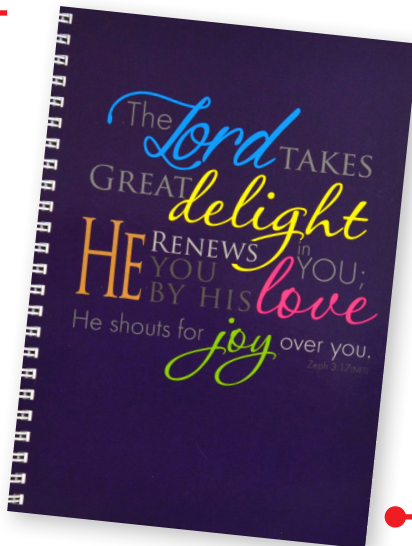 The Lord TAKES
GREAT delight
in
HE RENEWS YOU;
YOU
BY HIS love
He shouts for joy over you.
Zeph 3:17